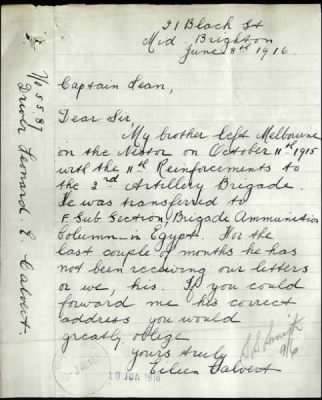 21 Black St
Mid. Brighton
June 8th 1916.
Captain Lean,
Dear Sir,
My brother left Melbourne
on the Nestor on October 11th 1915
with the 11th Reinforcements to
the 2nd Artillery Brigade.
He was transferred to
F Sub Section, Brigade Ammunition
Column in Egypt. For the
last couple of months he has
not been receiving our letters
or we, his. If you could
forward me his correct
address you would
greatly oblige
yours truly
Eileen Calvert
9/6
No 5581
Driver Leonard E. Calvert.